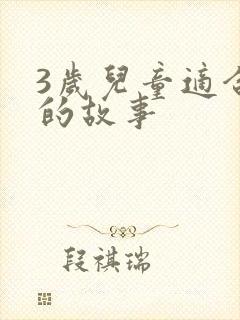 3歲兒童適合
的故事
段祺瑞